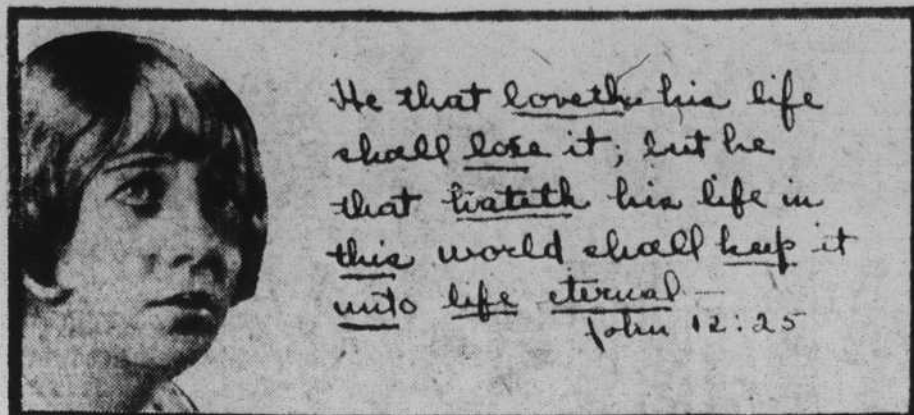 He that loveth his life
shall lose it; but he
that hateth his life in
this world shall keep it
unto life eternal—
John 12:25